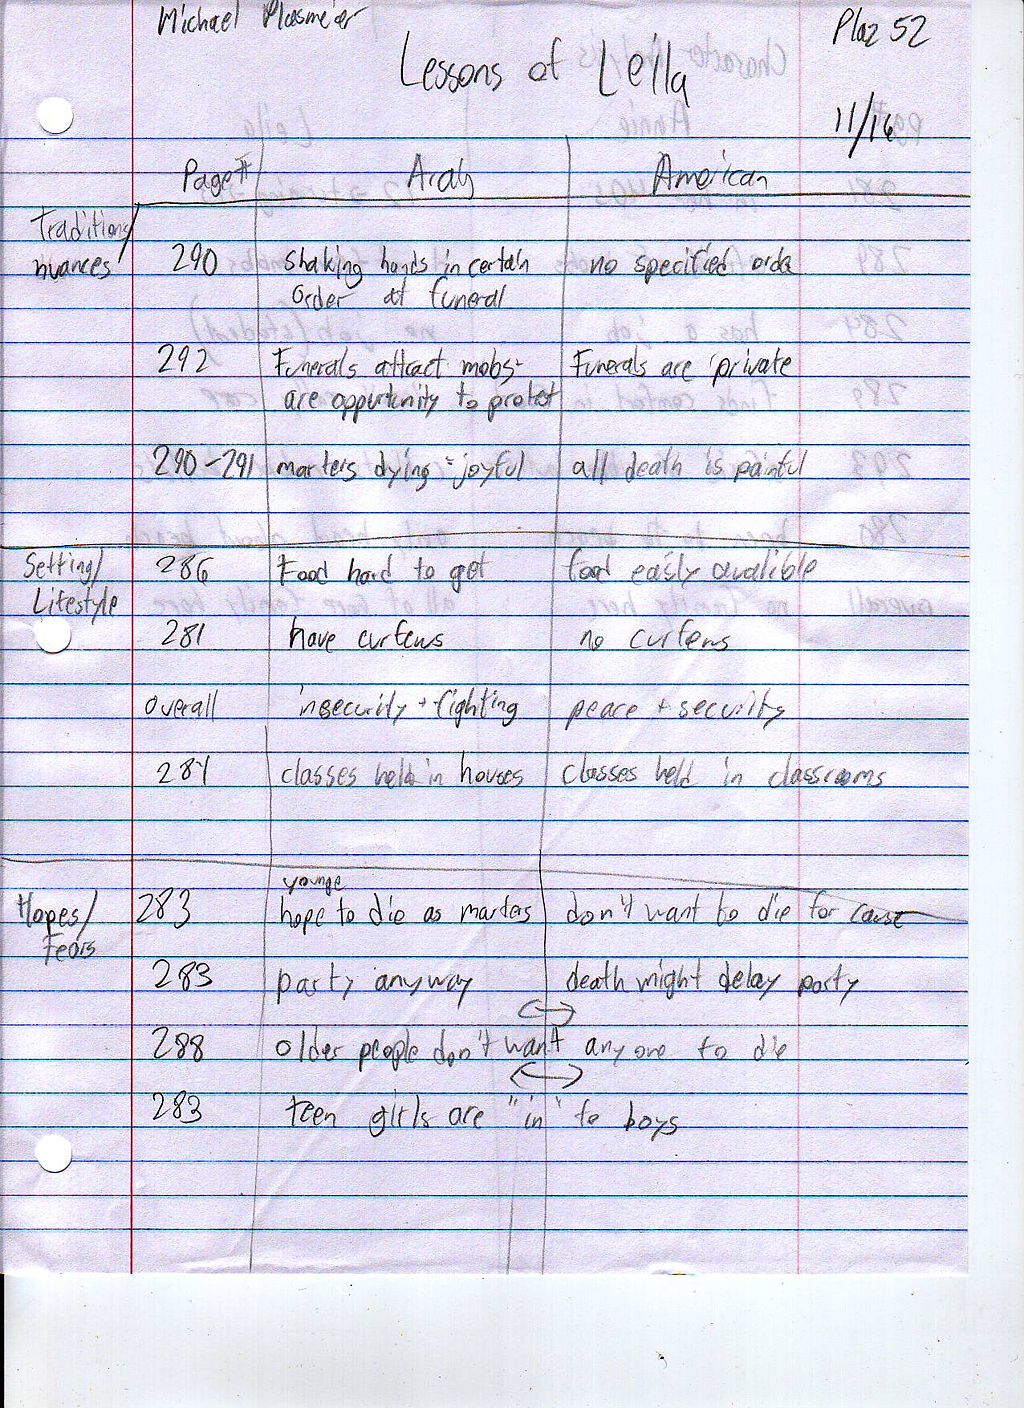 Michael Plasmeier
Plaz 52
Lessons of Leila
11/16
Page # Arab American
Traditions/
nuances
290 Shaking hands in certain no specified order
order at funeral
292 Funerals attract mobs- Funerals are private
are opportunity to protest
290-291 marters dying = joyful all death is painful
Setting/ 286 Food hard to get food easly avalible
Lifestyle
281 have curfews no curfews
overall insecurity + fighting peace + security
281 classes held in houses classes held in classrooms
younge
Hopes/ 283 hope to die as marters don't want to die for cause
Fears
283 party anyway death might delay party
288 older people don't want anyone to die
283 teen girls are "in" to boys